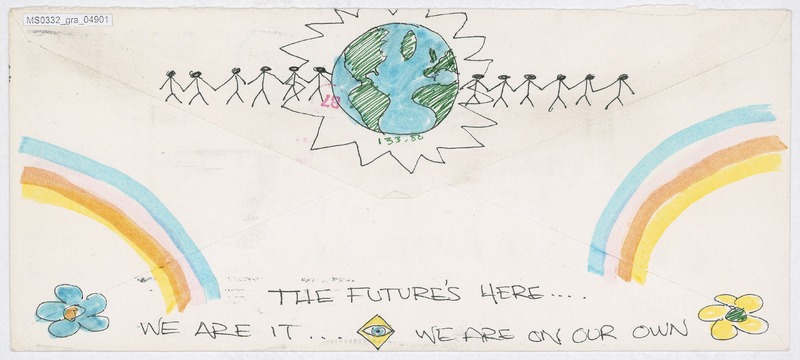 MS0332_gra_04901
87
133.50
THE FUTURE'S HERE....
WE ARE IT.... WE ARE ON OUR OWN